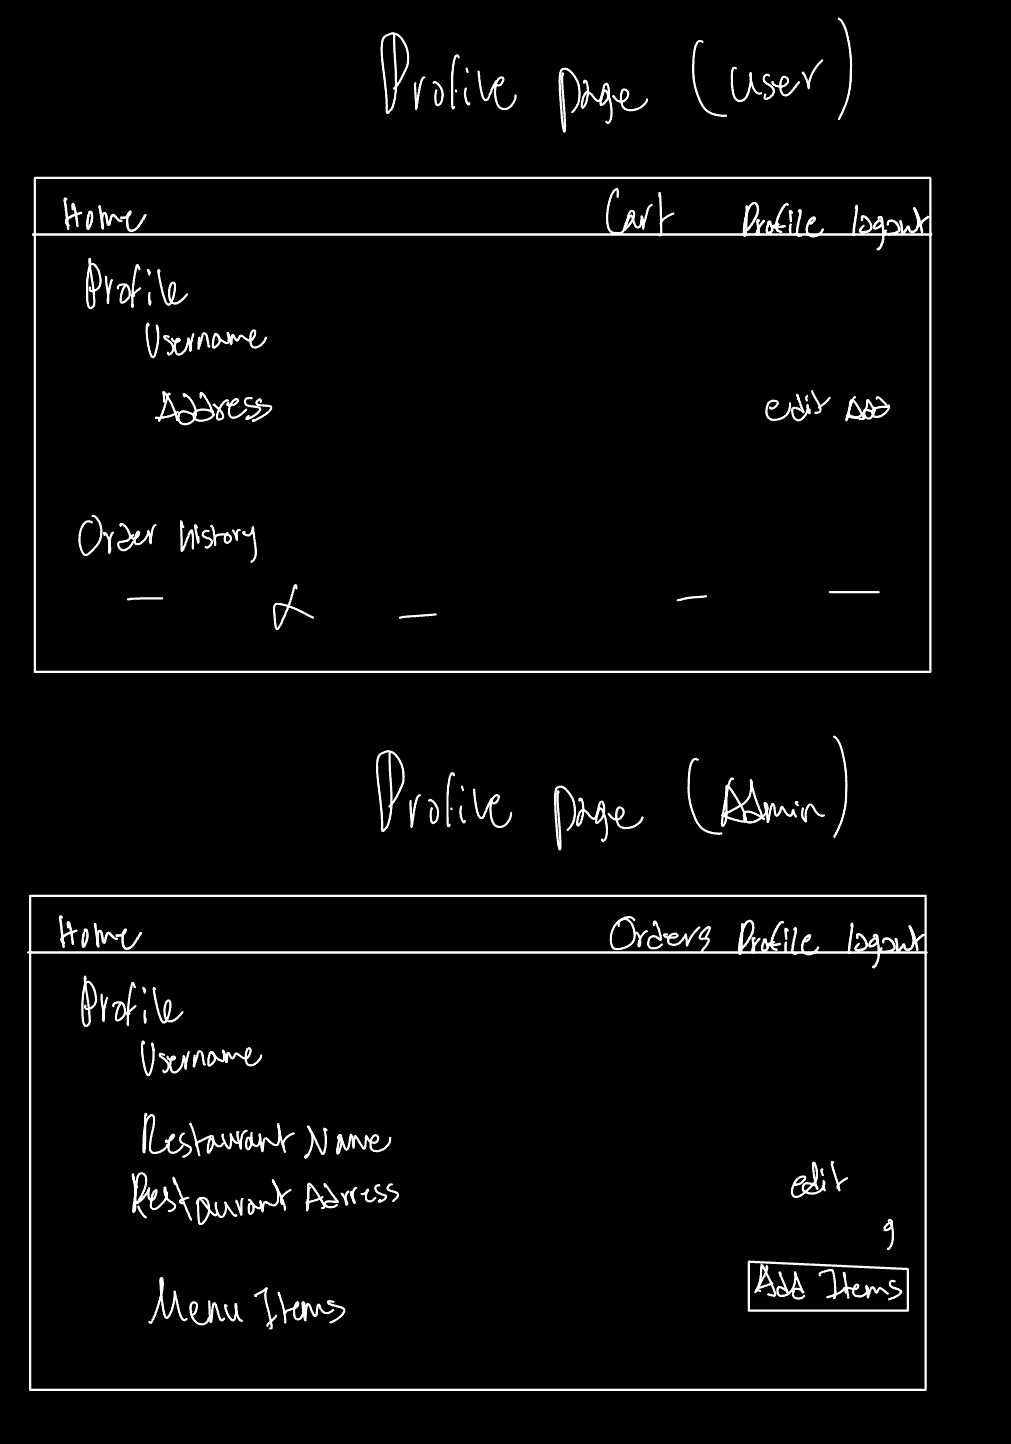 Profile page (user)
Home Cart Profile logout
Profile
Username
Address edit Add
Order history
Profile page (Admin)
Home Orders Profile logout
Profile
Username
Restaurant Name
Restaurant Adrress edit
9
Menu Items Add Items